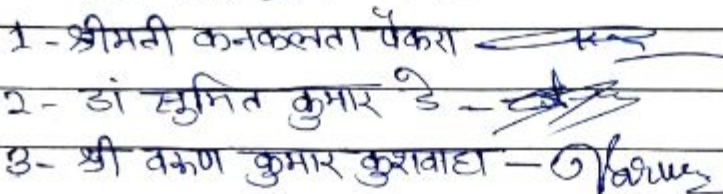 1 - श्रीमती कनकलता पैकरा
2 - डां सुमित कुमार डे -
3 - श्री वरूण कुमार कुशवाहा -